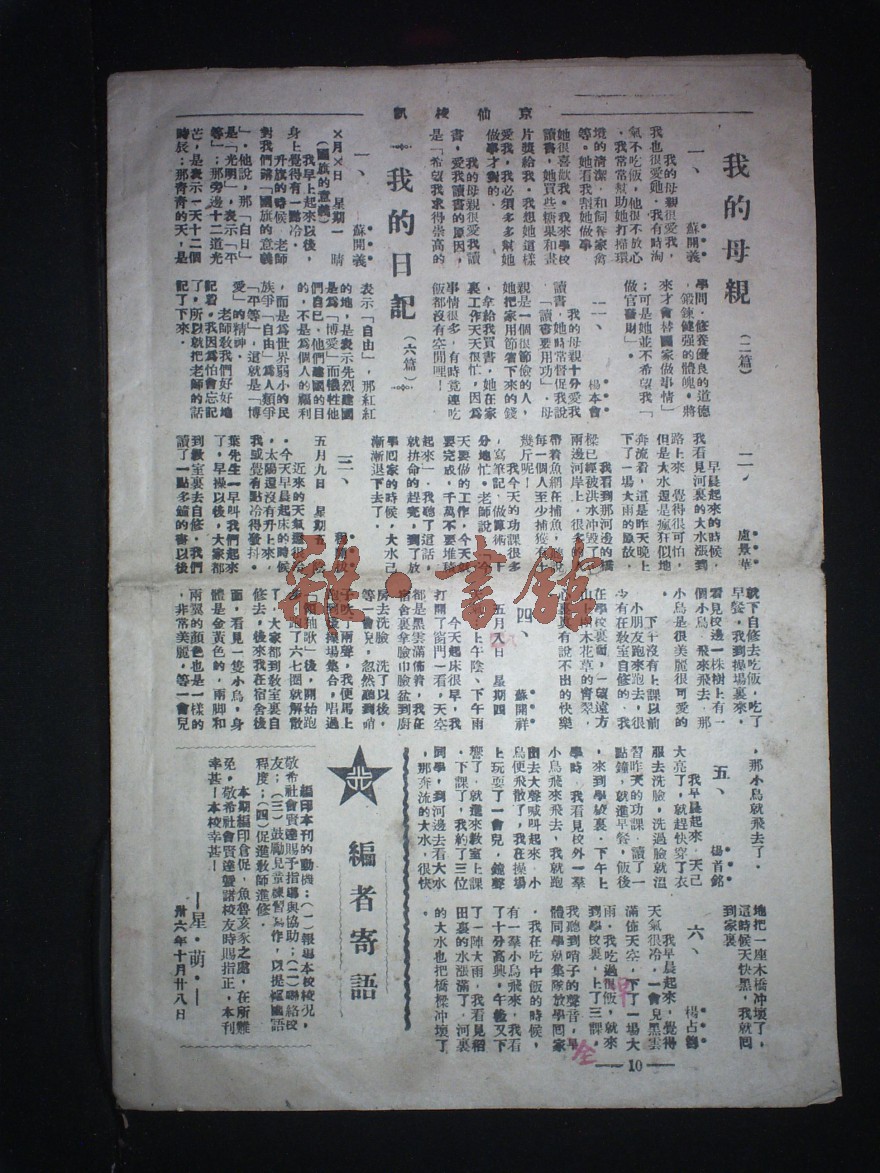 京仙校訊
我的母親（二篇）
一、 蘇開義
我的母親很愛我，
我也很愛她，我有時淘
氣不吃飯，他很不放心
，我常常幫助她打掃環
境的清潔，和飼養家禽
等。她看我幫她做事，
她很喜歡我。我來學校
讀書，她買些糖果和畫
片獎給我。我想她這樣
愛我，我必須多多幫她
做事才對的。
我的母親很愛我讀
書，愛我讀書的原因，
是「希望我求得崇高的
學問，修養優良的道德
，鍛鍊健强的體魄。將
來才會替國家做事情」
；可是她並不希望我「
做官發財」。
二、 楊本會
我的母親十分愛我
讀書，她時常督促我說
「讀書要用功」，母
親是一個很節儉的人，
她把家用節省下來的錢
，拿給我買書，她在家
裏工作天天很忙，因爲
事情很多，有時竟連吃
飯都沒有空閒哩！
我的日記（六篇）
一、 蘇開義
×月×日 星期一 晴
（國旗的意義）
我早上起來以後，
身上覺得有一點冷。
升旗的時候，老師
對我們講「國旗的意義
」，他說，那「白日」
是「光明」，表示「平
等」；那旁邊十二道光
芒，是表示一天十二個
時辰；那青青的天，是
表示「自由」，那紅紅
的地，是表示先烈建國
是爲「博愛」而犧牲他
們自己，他們建國的目
的，不是爲個人的福利
，而是爲世界弱小的民
族爭「自由」爲人類爭
「平等」，這就是「博
愛」的精神。
老師教我們好好地
記着。我因爲怕會忘記
了，所以就把老師的話
記了下來。
二、 盧景華
早晨起來的時候，
我看見河裏的大水漲到
路上來，覺得很可怕，
但是大水還是瘋狂似地
奔流着，這是昨天晚上
下了一場大雨的原故，
我看到那河邊的橋
樑已經被洪水冲毀了，
兩邊河岸上，很多的人
帶着魚網在捕魚，
每一個人至少捕獲有十
幾斤呢！
我今天的功課很多
，寫筆記，做算術，十
分地忙。老師說「今
天要做的工作，今天就
要完成，千萬不要堆積
起來」，我聽了這話，
就拚命的趕完，到了放
學回家的時候，大水已
漸漸退下去了。
三、
五月九日 星期五
近來的天氣還很冷
，太陽還沒有升上來，
我或覺有點冷得發抖。
今天早晨起床的時候
，葉先生一早叫我們起來
了，早操以後，大家都
到教室裏去自修，我們
讀了一點多鐘的書以後
就下自修去吃飯，吃了
早餐，我到操場裏來，
看見校邊一株樹上有一
個小鳥，飛來飛去，那
小鳥是很美麗很可愛的
下午沒有上課以前
，小朋友跑來跑去，很
少有在教室自修的，我
在學校裏面，一望遠方
山上的木花草的青翠，
心裏真有說不出的快樂
四、 蘇開祥
五月八日 星期四
上午陰，下午雨
今天起床很早，我
打開了窗門一看，天空
都是黑雲滿佈着，我在
宿舍裏拿臉巾臉盆到廚
房去洗臉，洗了以後，
等一會兒，忽然聽到哨
子吹了兩聲，我便馬上
跑到後操場集合，唱過
「領袖歌」後，開始跑
步，跑了六七圈就解散
了，大家都到教室裏自
修去，後來我在宿舍後
面，看見一隻小鳥，身
體是金黃色的，兩脚和
兩翼的顏色也是一樣的
，非常美麗，等一會兒
，那小鳥就飛去了。
五、 楊首銘
我早晨起來，天已
大亮了，就趕快穿了衣
服去洗臉，洗過臉就温
習昨天的功課，讀了一
點鐘，就進早餐，飯後
，來到學校裏，下午上
學時，我看見校外一羣
小鳥飛來飛去，我就跑
出去大聲喊叫起來，小
鳥便飛散了，我在操場
上玩耍了一會兒，鐘聲
響了，就進來教室上課
，下課了，我約了三位
同學，到河邊去看大水
，那奔流的大水，很快
地把一座木橋冲壞了，
這時候天快黑，我就回
到家裏
六、 楊占鈞
我早晨起來，覺得
天氣很冷，一會兒黑雲
滿佈天空，下了一場大
雨，我吃過早飯，就來
到學校裏，上了三課，
我聽到哨子的聲音，
體同學就集隊放學回家
，我在吃中飯的時候，
有一羣小鳥飛來，我看
了十分高興。午後又下
了一陣大雨，我看見稻
田裏的水漲滿了，河裏
的大水也把橋樑冲壞了
早
全
編者寄語
編印本刊的動機：（一）報導本校校况，
敬希社會賢達賜予指導與協助；（二）聯絡校
友；（三）鼓勵兒童練習寫作，以提極國語
程度；（四）促進教師進修。
本期編印倉促，魚魯亥豕之處，在所難
免，敬希社會賢達暨諸校友時賜指正，本刊
幸甚！本校幸甚！
—星·萌·—
卅六年十月廿八日
—10—
雜·書館